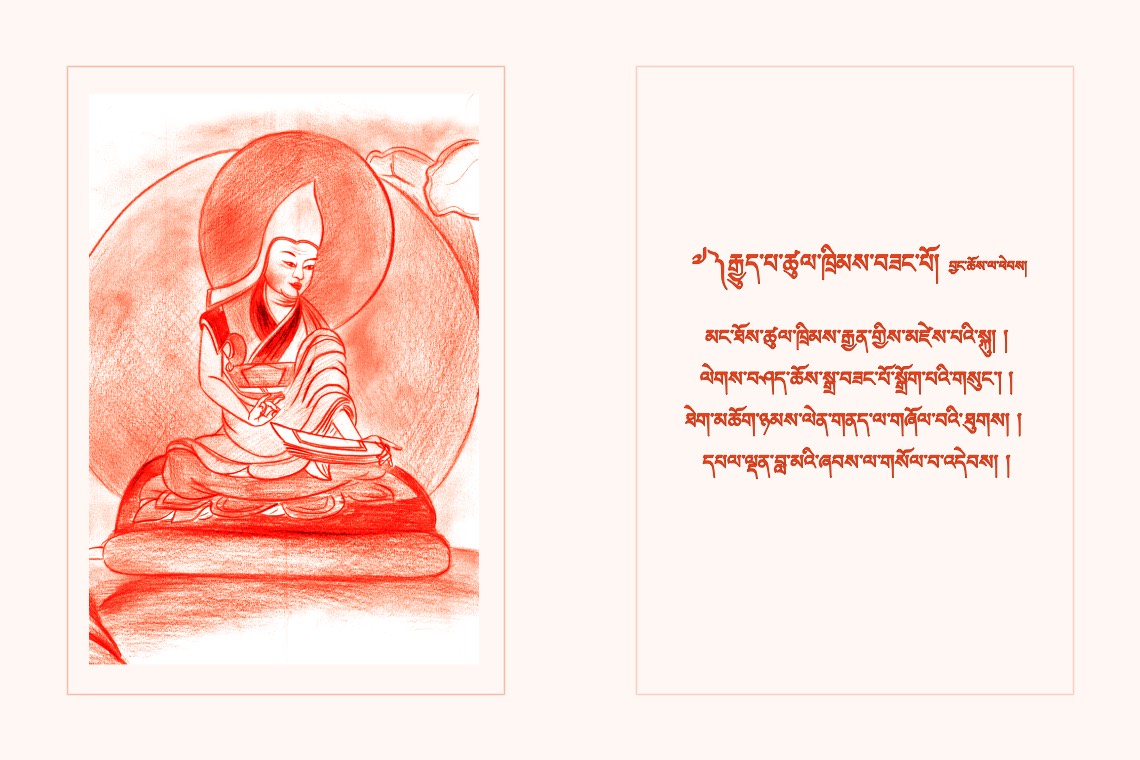 ༡༽ རྒྱུད་པ་ཚུལ་ཁྲིམས་བཟང་པོ། བྱང་ཆོས་ལ་ཕེབས།
མང་ཐོས་ཚུལ་ཁྲིམས་རྒྱན་གྱིས་མཛེས་པའི་སྐུ། །
ལེགས་བཤད་ཆོས་སྒྲ་བཟང་པོ་སྒྲོག་པའི་གསུང་། །
ཐེག་མཆོག་ཉམས་ལེན་གནད་ལ་གཞོལ་བའི་ཐུགས། །
དཔལ་ལྡན་བླ་མའི་ཞབས་ལ་གསོལ་བ་འདེབས། །